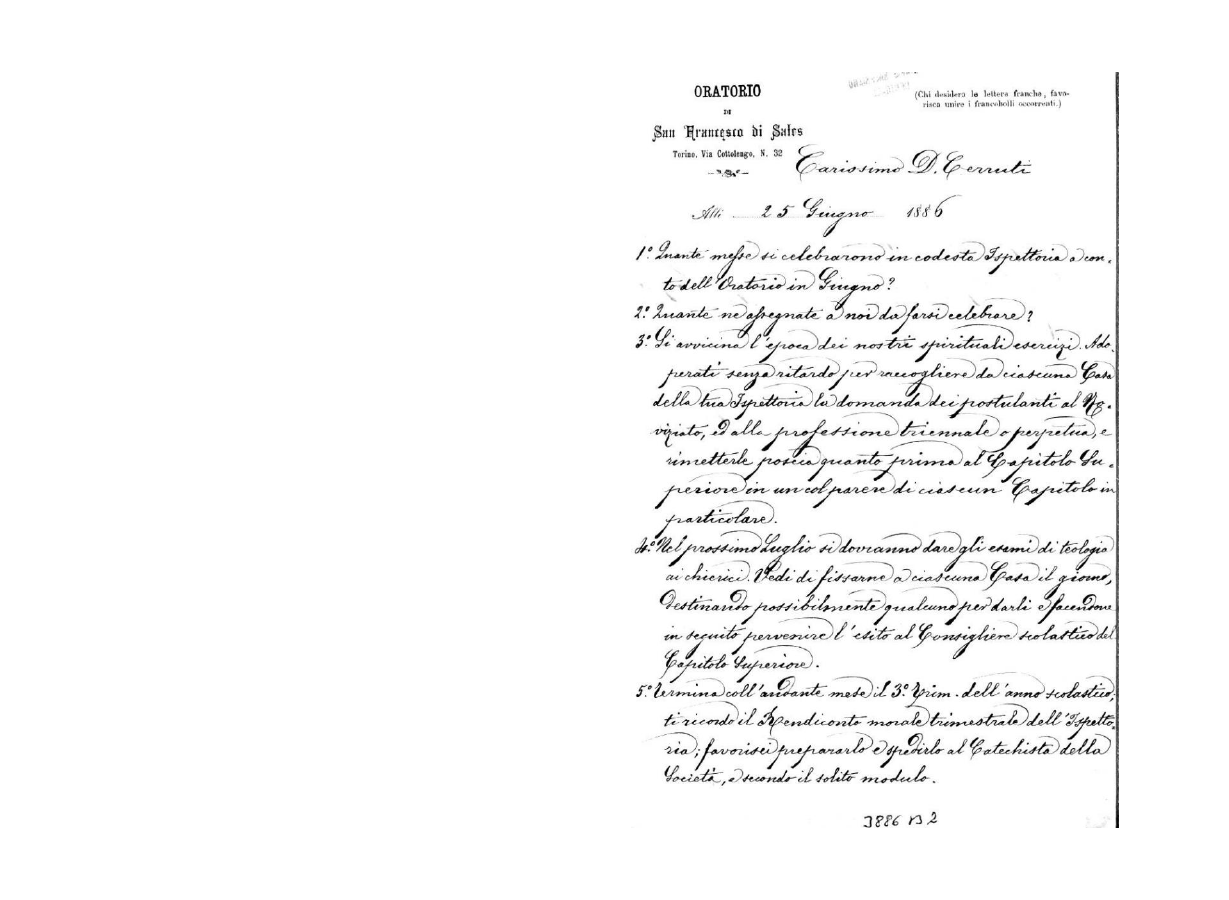 ORATORIO
DI
San Francesco di Sales
Torino, Via Cottolengo, N. 32
(Chi desidera le lettere franche, favo-
risca unire i francobolli occorrenti.)
Carissimo D. Cerruti
Alli 25 Giugno 1886
1.° Quante messe si celebrarono in codesta Ispettoria a con-
to dell'Oratorio in Giugno?
2.° Quante ne assegnate a noi da farsi celebrare?
3.° Si avvicina l'epoca dei nostri spirituali esercizi. Ado-
perati senza ritardo per raccogliere da ciascuna Casa
della tua Ispettoria la domanda dei postulanti al No-
viziato, ed alla professione triennale o perpetua, e
rimetterle poscia quanto prima al Capitolo Su-
periore in un col parere di ciascun Capitolo in
particolare.
4.° Nel prossimo Luglio si dovranno dare gli esami di teologia
ai chierici. Vedi di fissarne a ciascuna Casa il giorno,
destinando possibilmente qualcuno per darli e facendone
in seguito pervenire l'esito al Consigliere scolastico del
Capitolo Superiore.
5.° Termina coll'andante mese il 3.° Trim. dell'anno scolastico,
ti ricordo il Rendiconto morale trimestrale dell'Ispetto-
ria; favorisci prepararlo e spedirlo al Catechista della
Società, e secondo il solito modulo.
3886 B 2